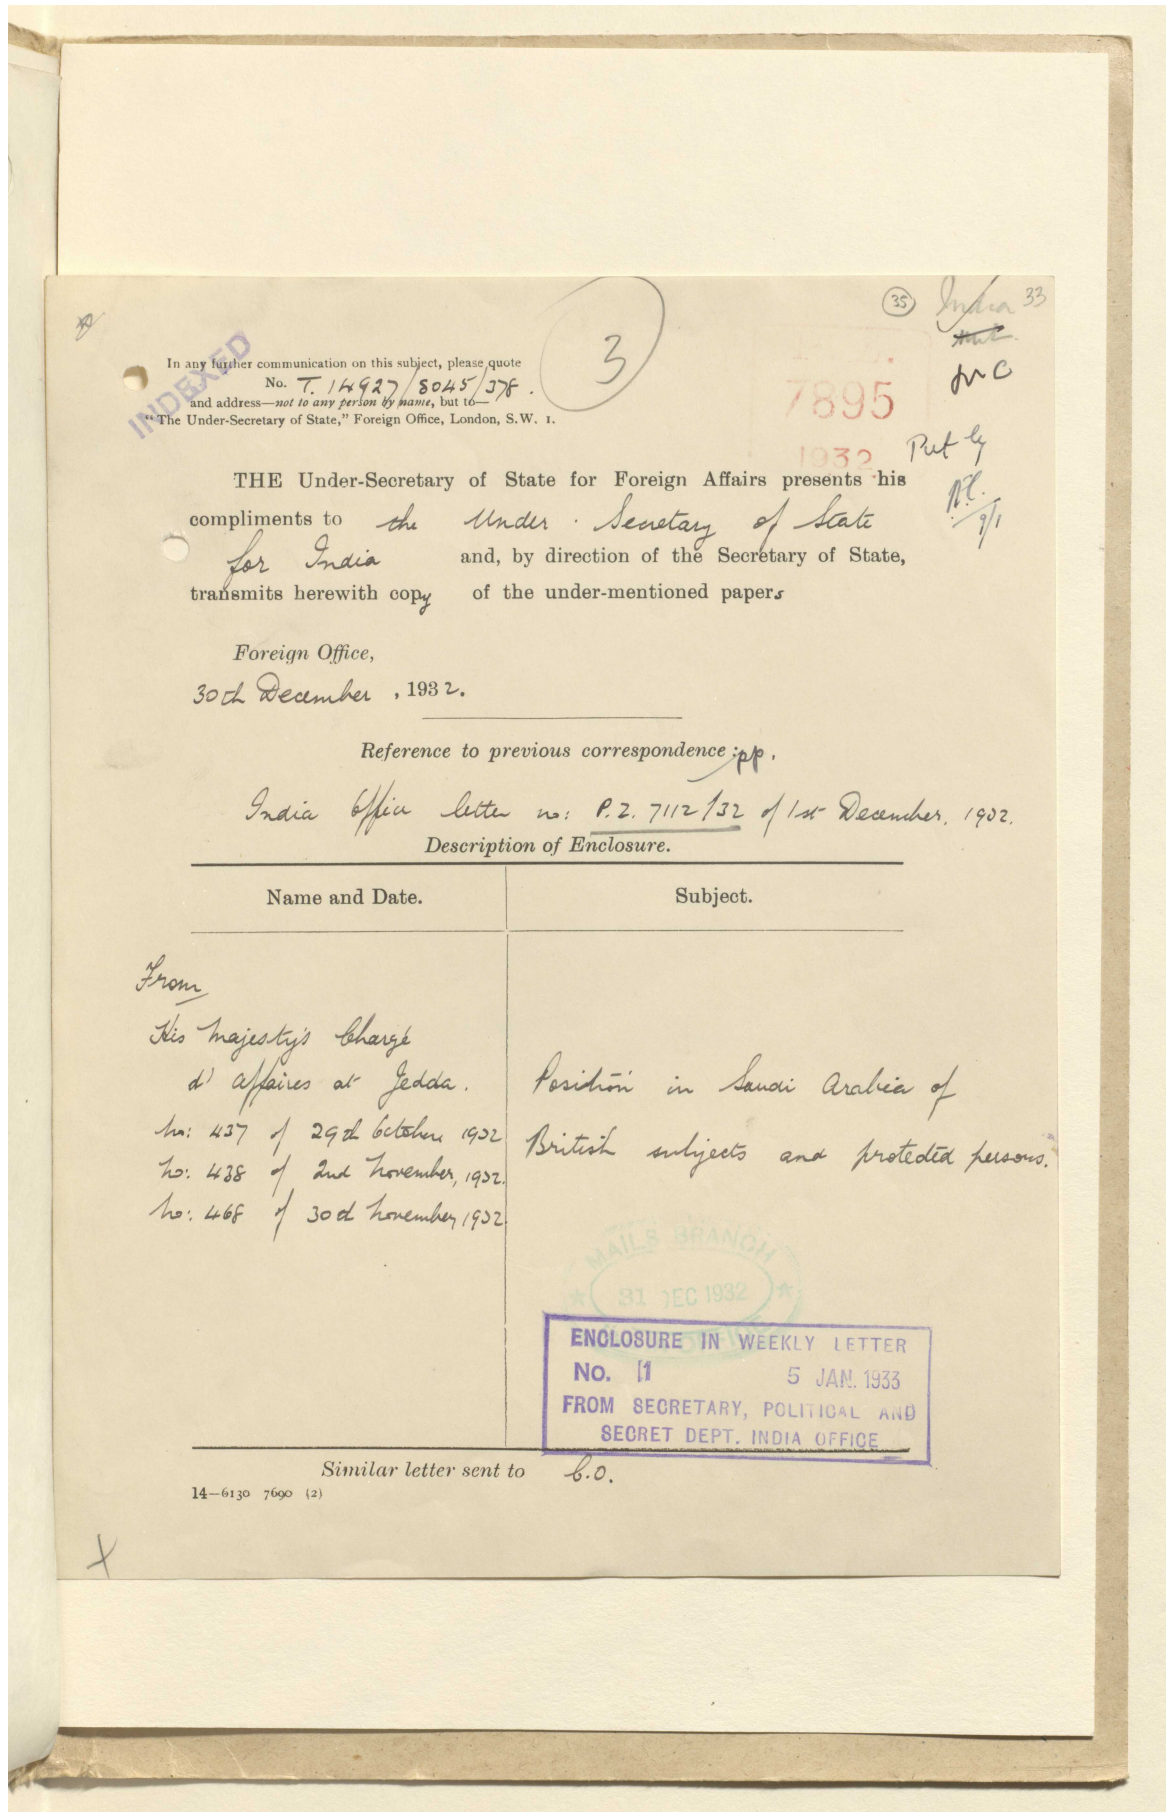 35
India 33
3
INDEXED
In any further communication on this subject, please quote
No. T. 14927/8045/378.
and address—not to any person by name, but to—
"The Under-Secretary of State," Foreign Office, London, S.W. 1.
7895
1932
Put by
9/1
THE Under-Secretary of State for Foreign Affairs presents his
compliments to the Under-Secretary of State
for India and, by direction of the Secretary of State,
transmits herewith copy of the under-mentioned papers
Foreign Office,
30th December, 1932.
Reference to previous correspondence :
India Office letter no: P.Z. 7112/32 of 1st December, 1932.
Description of Enclosure.
Name and Date.
Subject.
From
His Majesty's Chargé
d'Affaires at Jedda.
No: 437 of 29th October 1932
No: 438 of 2nd November, 1932.
No: 468 of 30th November, 1932
Position in Saudi Arabia of
British subjects and protected persons.
MAILS BRANCH
31 DEC 1932
ENCLOSURE IN WEEKLY LETTER
NO. 11 5 JAN. 1933
FROM SECRETARY, POLITICAL AND
SECRET DEPT. INDIA OFFICE
Similar letter sent to C.O.
14—6130 7690 (2)
X